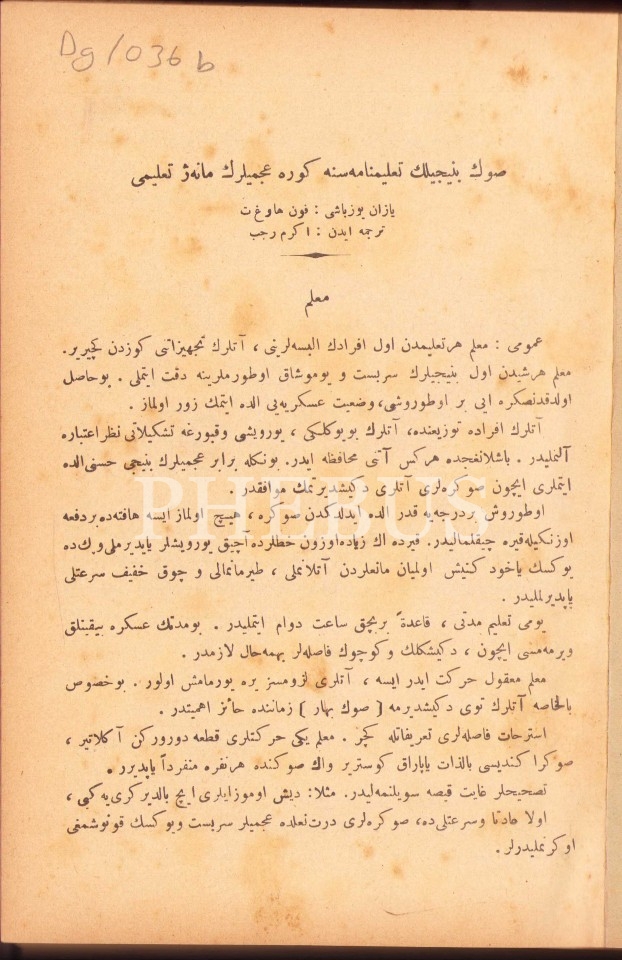 Dg/036 b
صوك بنيجيلك تعليمنامه‌سنه كوره عجميلرك مانه‌ژ تعليمى
يازان يوزباشى : فون هاوغ ت
ترجمه ايدن : اكرم رجب
معلم
عمومى : معلم هرتعليمدن اول افرادك البسه‌لرينى ، آتلرك تجهيزاتنى كوزدن كچيرير.
معلم هرشيدن اول بنيجيلرك سربست و يوموشاق اوطورملرينه دقت ايتملى . بوحاصل
اولدقدنصكره ايى بر اوطوروشى، وضعيت عسكريه‌يى الده ايتمك زور اولماز .
آتلرك افراده توزيعنده، آتلرك بويوكلكى ، يورويشى وقبورغه تشكيلاتى نظراعتباره
آلنمليدر . باشلانغجده هركس آتنى محافظه ايدر. بونكله برابر عجميلرك بنيجى حسنى الده
ايتملرى ايچون صوكره‌لرى آتلرى دكيشديرتمك موافقدر .
اوطوروش بردرجه‌يه قدر الده ايدلدكدن صوكره ، هيچ اولماز ايسه هافته‌ده بردفعه
اوزنكيله‌قيره چيقلماليدر. قيرده اك زياده‌اوزون خطلرده‌آچيق يورويشلر ياپديرملى وپك‌ده
يوكسك ياخود كنيش اولميان مانعلردن آتلانملى ، طيرمانمالى و چوق خفيف سرعتلى
ياپديرلمليدر .
يومى تعليم مدتى ، قاعدةً بربچق ساعت دوام ايتمليدر . بومدتك عسكره بيقينلق
ويرمه‌مسى ايچون ، دكيشكلك وكوچوك فاصله‌لر بهمه‌حال لازمدر .
معلم معقول حركت ايدر ايسه ، آتلرى لزومسز يره يورمامش اولور . بوخصوص
بالخاصه آتلرك توى دكيشديرمه [ صوك بهار ] زماننده حائز اهميتدر .
استرحات فاصله‌لرى تعريفاتله كچر . معلم يكى حركتلرى قطعه دورورکن آكلاتير ،
صوكرا كنديسى بالذات ياپاراق كوسترير واك صوكنده هرنفره منفرداً ياپديرر .
تصحيحلر غايت قيصه سويلنمه‌ليدر. مثلا: ديش اوموزايلرى ايچ بالديركرى‌يه كبى ،
اولا عادتا وسرعتلى‌ده، صوكره‌لرى درت‌نعلده عجميلر سربست ويوكسك قونوشمغى
اوكرنمليدرلر.
PHEBUS